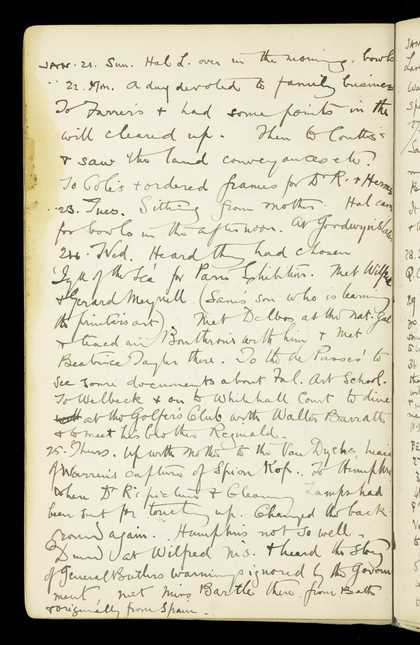 JAN. 21. Sun. Hal L. over in the morning. bowls
" 22. Mon. A day devoted to family business
To Farrer's & had some points in the
will cleared up. Then to Coutts's
& saw the land conveyances etc.
To Cole's & ordered frames for Dr R. &
" 23. Tues. Sitting from mother. Hal came
for bowls in the afternoon. At
24. Wed. Heard they had chosen
of the Sea' for Paris Exhibition. Met Wilfred
& Gerard Meynell (Sam's son who is learning
the printer's art) Met at the Nat. Gal
& tea'd in with him & met
Beatrice Taylor there. To the De Passes' to
see some documents about Art School.
To Welbeck & on to Whitehall Court to dine
at the Golfers Club with Walter Barratt
& to meet his brother Reginald.
25. Thurs. Up with Mother to the Van Dycks, heard
of Warren's capture of Spion Kop. To
when Dr R's picture & Gleaming Lamps had
been sent for touching up. Changed the back-
ground again. not so well.
Dined at Wilfred M's. & heard the story
of General Butlers warnings ignored by the Govern
ment, met Miss there from Bath
& originally from Spain.